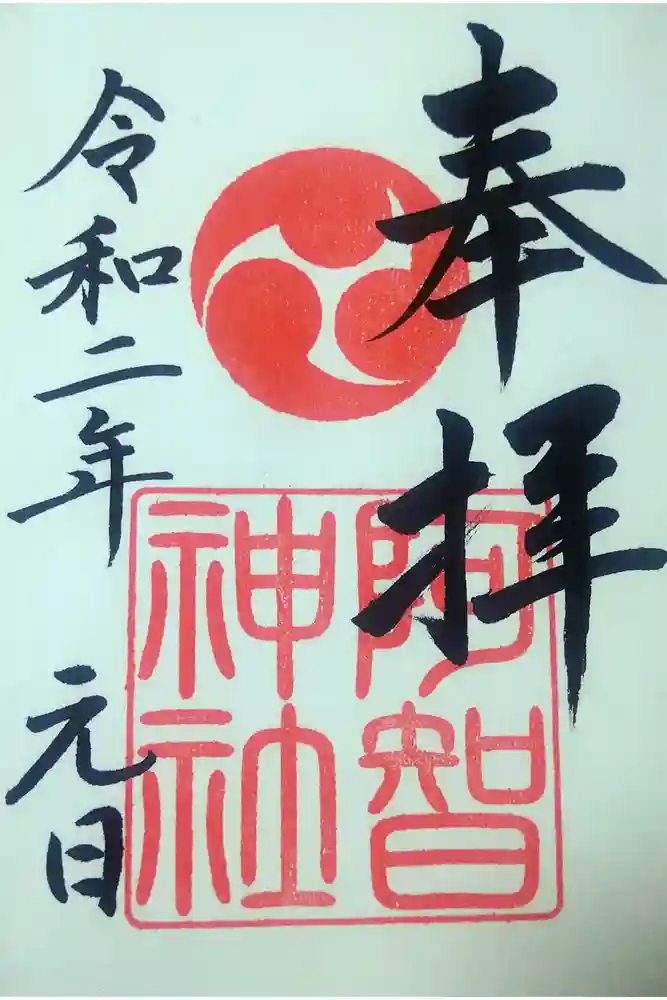 奉拝
阿智
神社
令和二年
元日